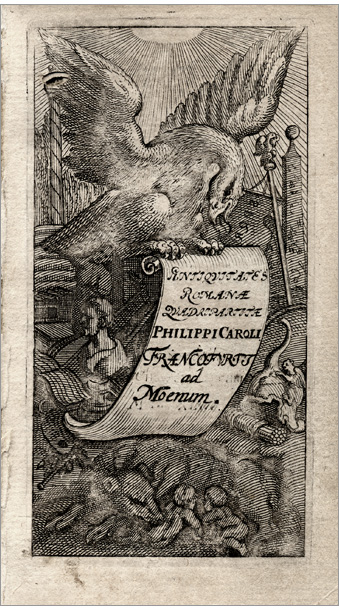 ANTIQVITATES
ROMANÆ
QVADRIPARTITÆ
PHILIPPI CAROLI
FRANCOFVRTI
ad
Moenum.